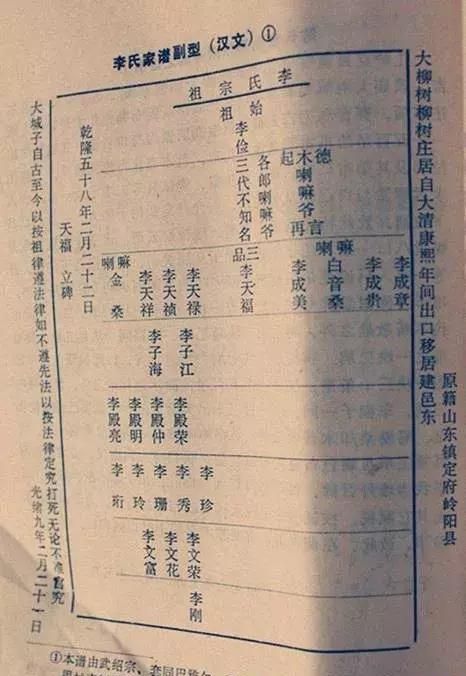 李氏家谱副型（汉文）①
大柳树柳树庄居自大清康熙年间出口移居建邑东
原籍山东镇定府岭阳县
李氏宗祖
始祖李俭三代不知名
各郎喇嘛爷
德木喇嘛爷
起
再言
李成章
李成贵
喇嘛白音桑
李成美
三品李天福
李天禄
李天祯
李天祥
喇嘛金桑
李子江
李子海
李殿荣
李殿仲
李殿明
李殿亮
李珍
李秀
李珊
李玲
李珩
李文荣
李文花
李文富
李刚
乾隆五十八年二月二十二日
天福 立碑
大城子自古至今以按祖律遵法律如不遵先法以按法律定究打死无论不准官究
光绪九年二月二十一日
①本谱由武绍宗、